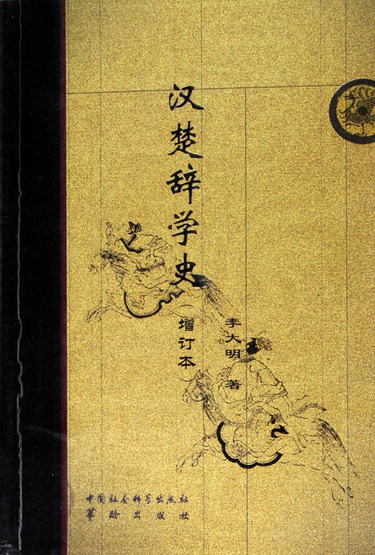 汉楚辞学史
（增订本
李大明 著
中国社会科学出版社
华龄出版社